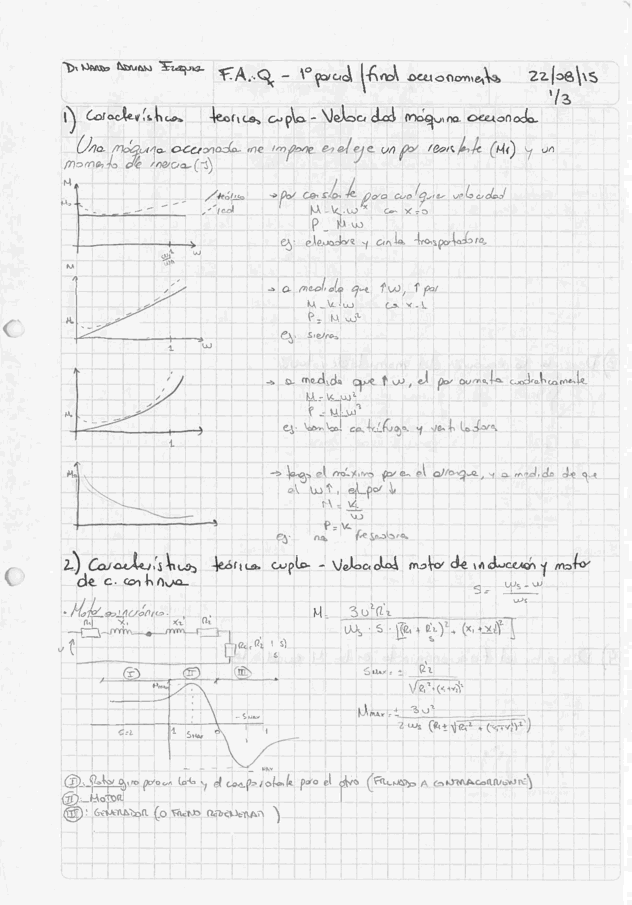 Di Nardo Adrian Ezequiel F.A.:Q - 1º parcial / final accionamientos 22/08/15
1/3
1) Características teoricas cupla - Velocidad máquina accionada
Una máquina accionada me impone en el eje un par resistente (Mr) y un
momento de inercia (J)
M
teórico
real
→ par constante para cualquier velocidad
M = k·w^x con x=0
P = M w
ej: elevadora y cinta transportadora
w
M
→ a medida que ↑w, ↑ par
M = k·w con x=1
P = M w²
ej: sierras
1 w
→ a medida que ↑w, el par aumenta cuadraticamente
M = k w²
P = M w³
ej: bomba centrífuga y ventiladora
1
→ tengo el máximo par en el arranque, y a medida de que
el w↑, el par ↓
M = k/w
P = k
ej: fresadora
2) Características teórica cupla - Velocidad motor de inducción y motor
de c. continua
S = (ws - w)/ws
· Motor asincrónico:
R1 X1 X2' R2'
M = 3U²R2' / (ws · S · [(R1 + R2'/s)² + (X1 + X2')²])
I II III
Smax = ± R2' / √(R1² + (X1+X2')²)
Mmax = ± 3U² / (2 ws (R1 ± √(R1² + (X1+X2')²)))
Mmax
S=2 1 Smax 0 -Smax -1
I: Rotor gira para un lado y el campo rotante para el otro (FRENADO A CONTRACORRIENTE)
II: MOTOR
III: GENERADOR (O FRENO REGENERAT )